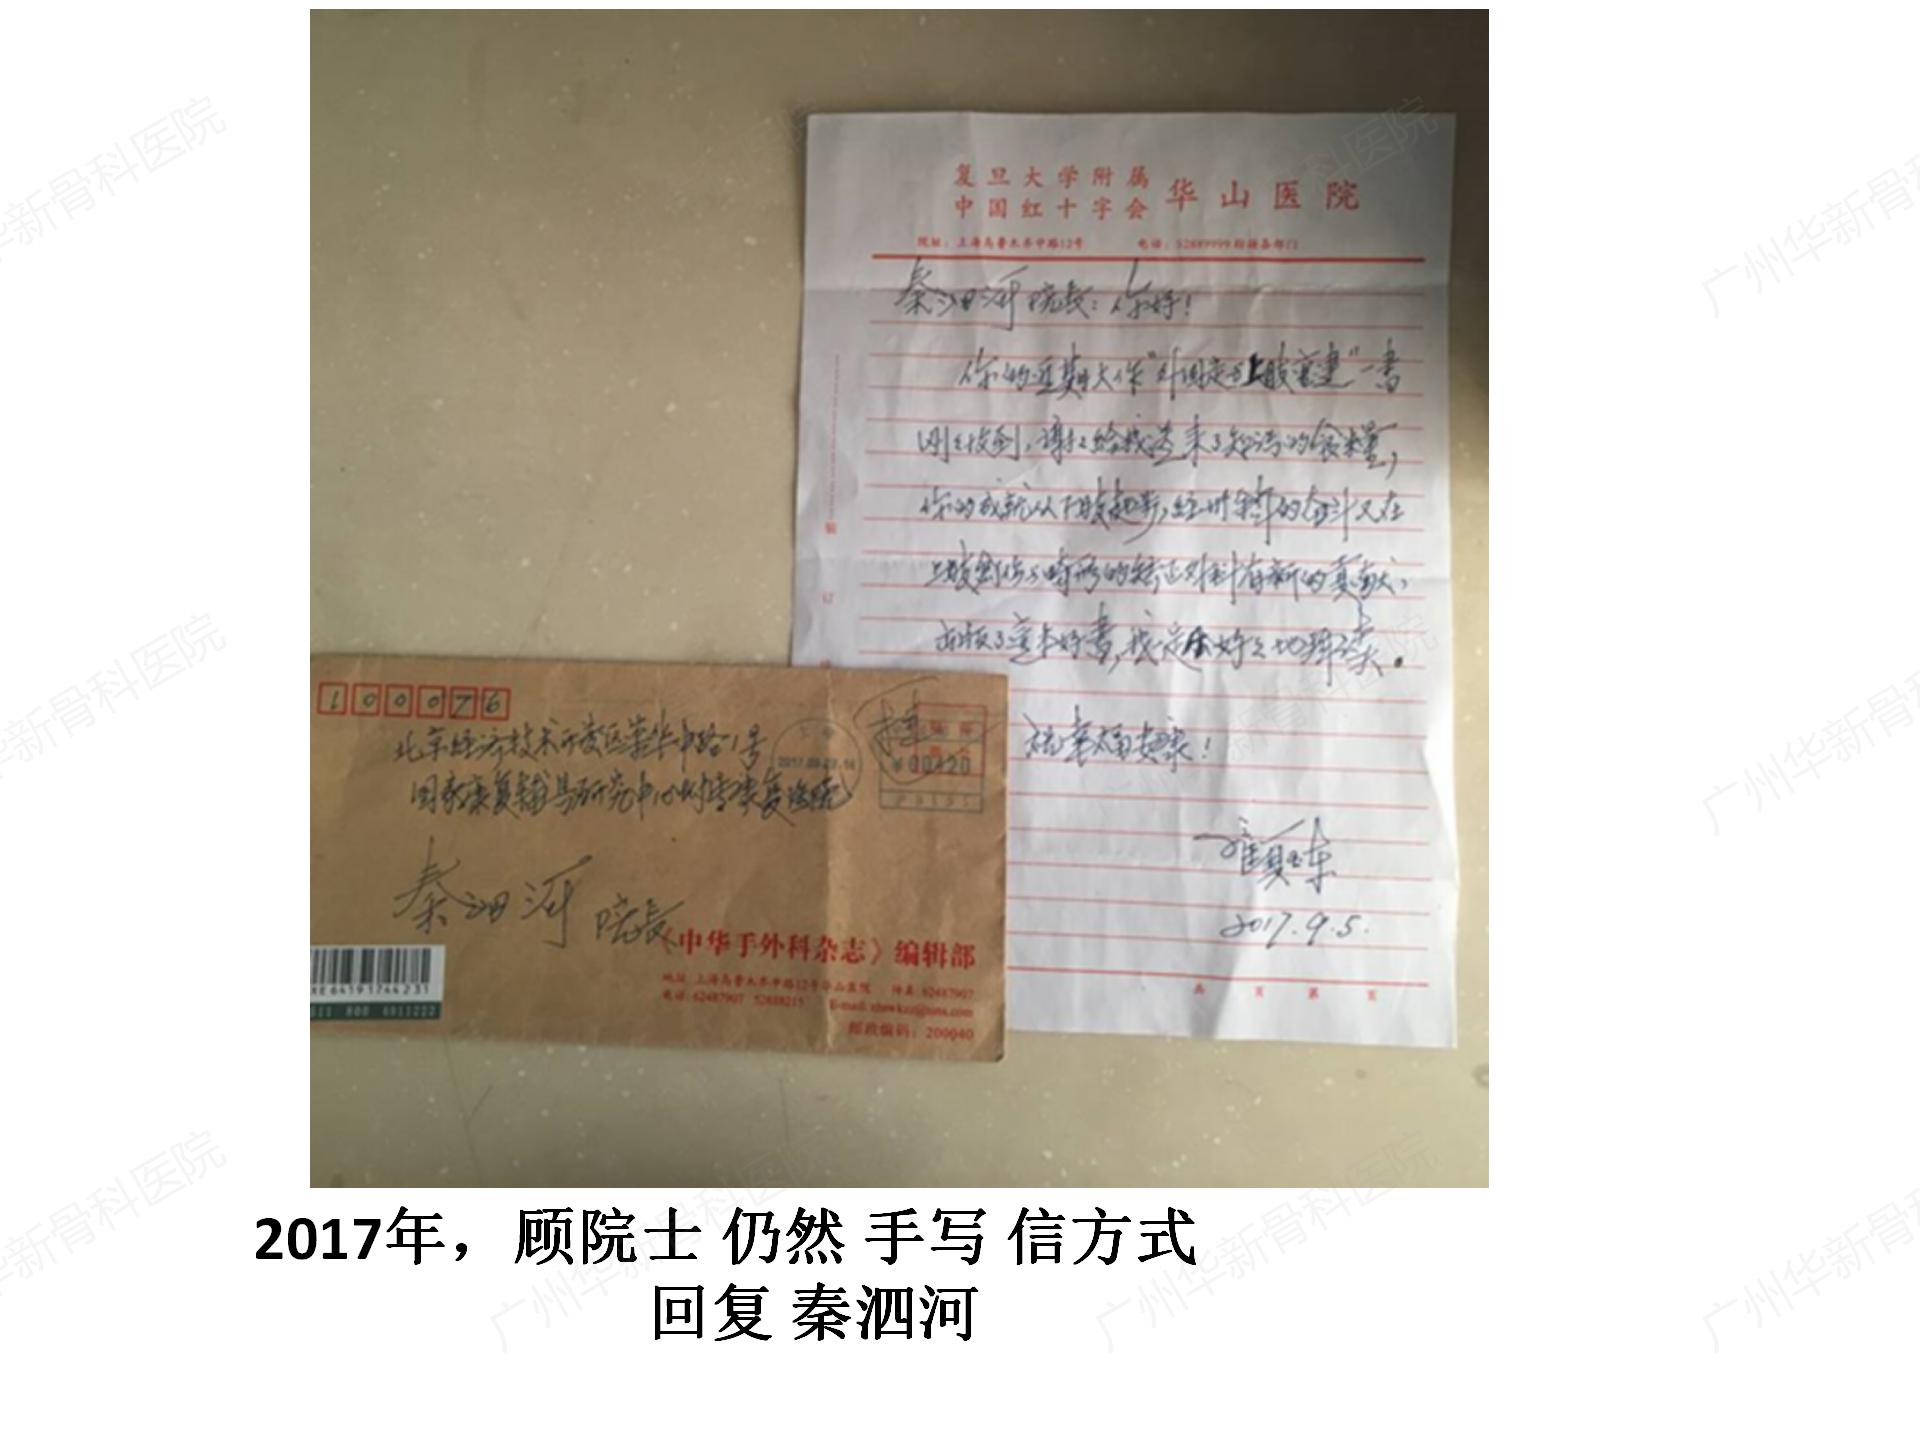 复旦大学附属
中国红十字会 华山医院
院址：上海乌鲁木齐中路12号 电话：52889999转接各部门
秦泗河院长：你好！
你的近期大作“外固定与上肢重建”一书
刚刚收到，谢谢给我送来了知识的食粮，
你的成就从下肢起步，经卅余年的奋斗又在
上肢创伤与畸形的矫正外科有新的贡献，
出版了这本好书，我定会好好地拜读。
祝幸福安康！
顾玉东
2017.9.5.
共 页 第 页
装
订
100076
北京经济技术开发区荣华中路1号
国家康复辅具研究中心附属康复医院
秦泗河 院长
挂
2017.09.07.14
¥00420
《中华手外科杂志》编辑部
地址 上海乌鲁木齐中路12号华山医院 传真：62487907
电话：62487907 52888215 E-mail:
邮政编码：200040
2017年，顾院士 仍然 手写 信方式
回复 秦泗河
广州华新骨科医院